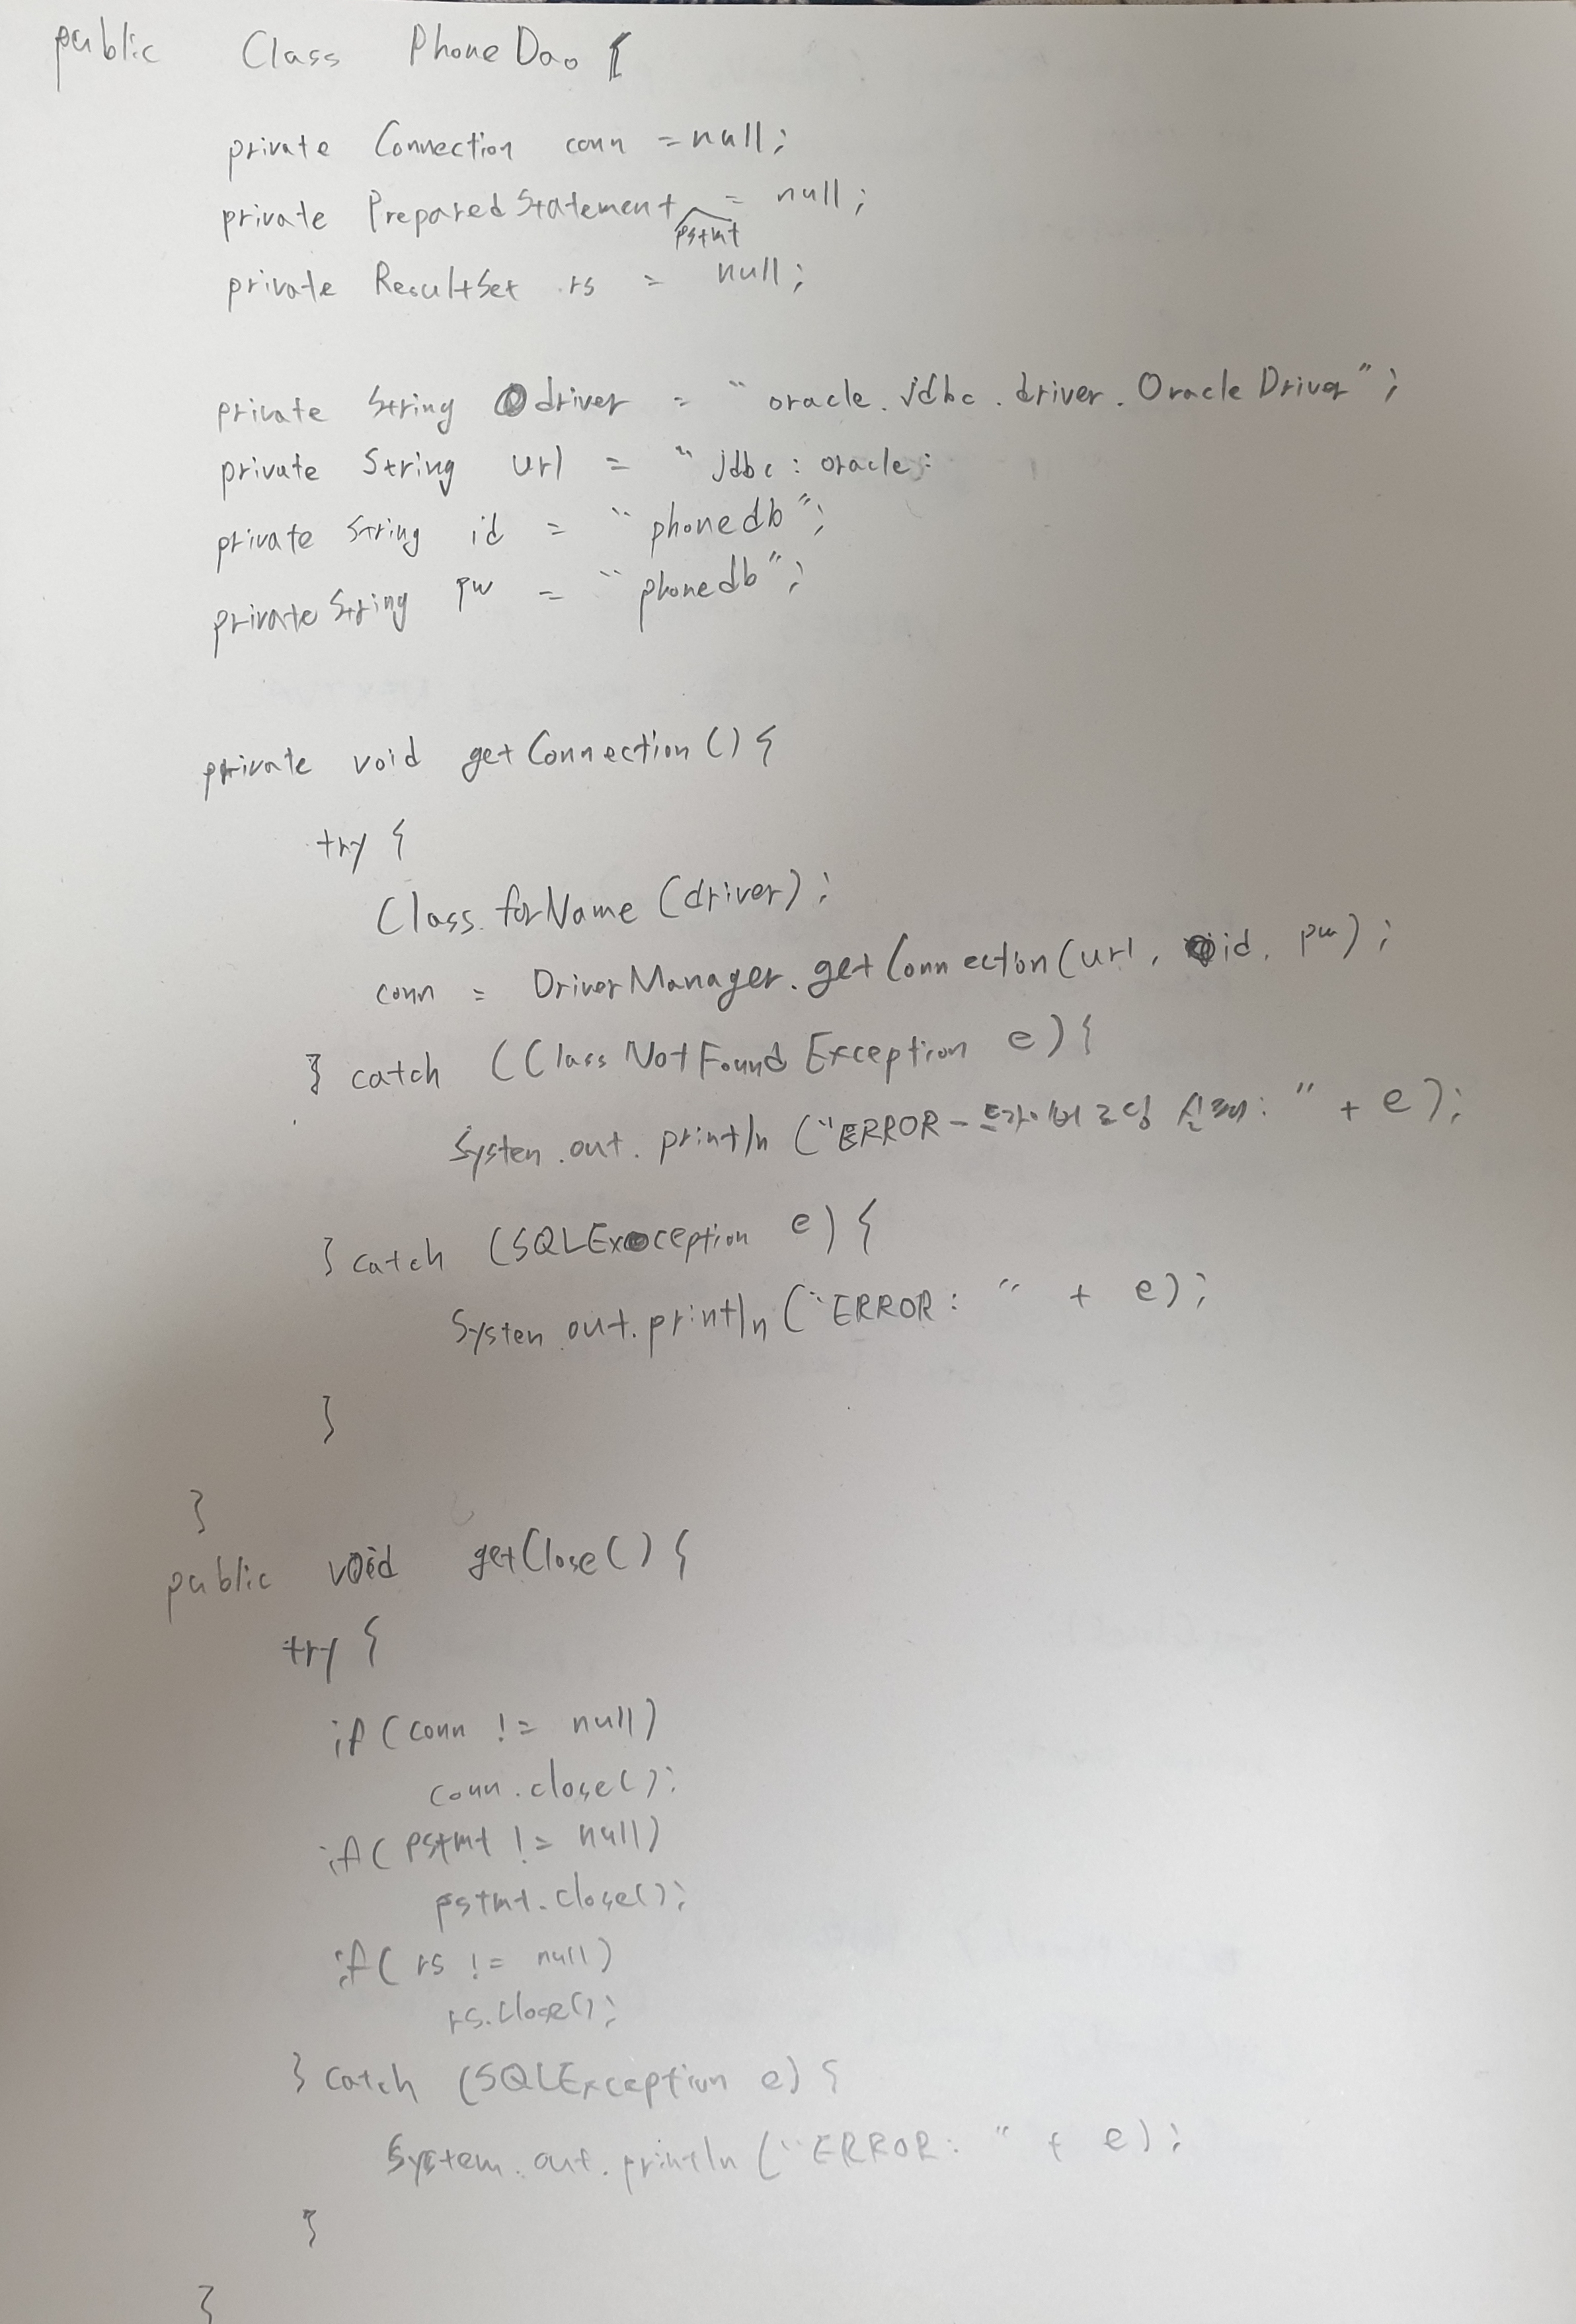 public Class PhoneDao {
private Connection conn = null;
private PreparedStatement pstmt = null;
private ResultSet rs = null;
private String driver = "oracle.jdbc.driver.OracleDriver";
private String url = "jdbc:oracle:
private String id = "phonedb";
private String pw = "phonedb";
private void getConnection() {
try {
Class.forName(driver);
conn = DriverManager.getConnection(url, id, pw);
} catch (ClassNotFoundException e) {
Systen.out.println("ERROR-드라이버 로딩 실패: " + e);
} catch (SQLException e) {
Systen.out.println("ERROR: " + e);
}
}
public void getClose() {
try {
if(conn != null)
conn.close();
if(pstmt != null)
pstmt.close();
if(rs != null)
rs.close();
} catch (SQLException e) {
System.out.println("ERROR: " + e);
}
}